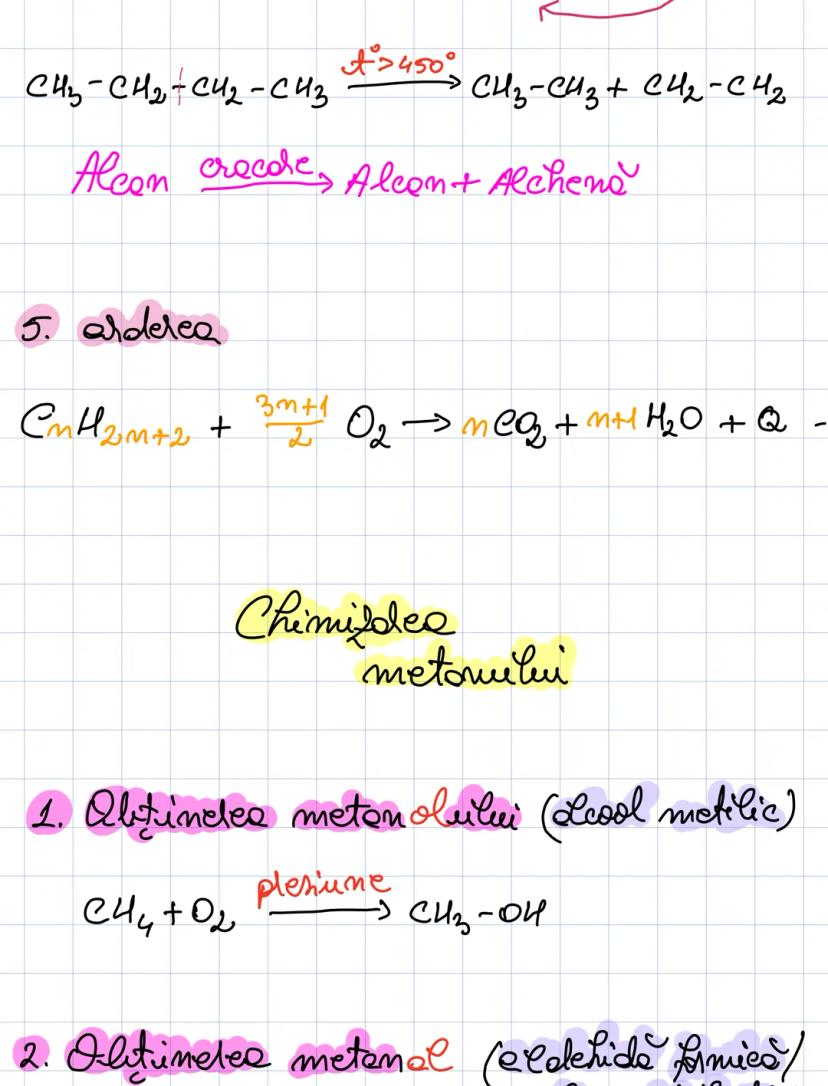 CH₃-CH₂-CH₂-CH₃ t°>450° → CH₃-CH₃ + CH₂-CH₂
Alcan cracare → Alcan + Alchenă
5. arderea
CnH2n+2 + 3n+1/2 O₂ → nCO₂ + n+1 H₂O + Q -
Chimizarea
metanului
1. Obținerea metanolului (alcool metilic)
CH₄ + O₂ presiune → CH₃-OH
2. Obținerea metanal (aldehidă formică)